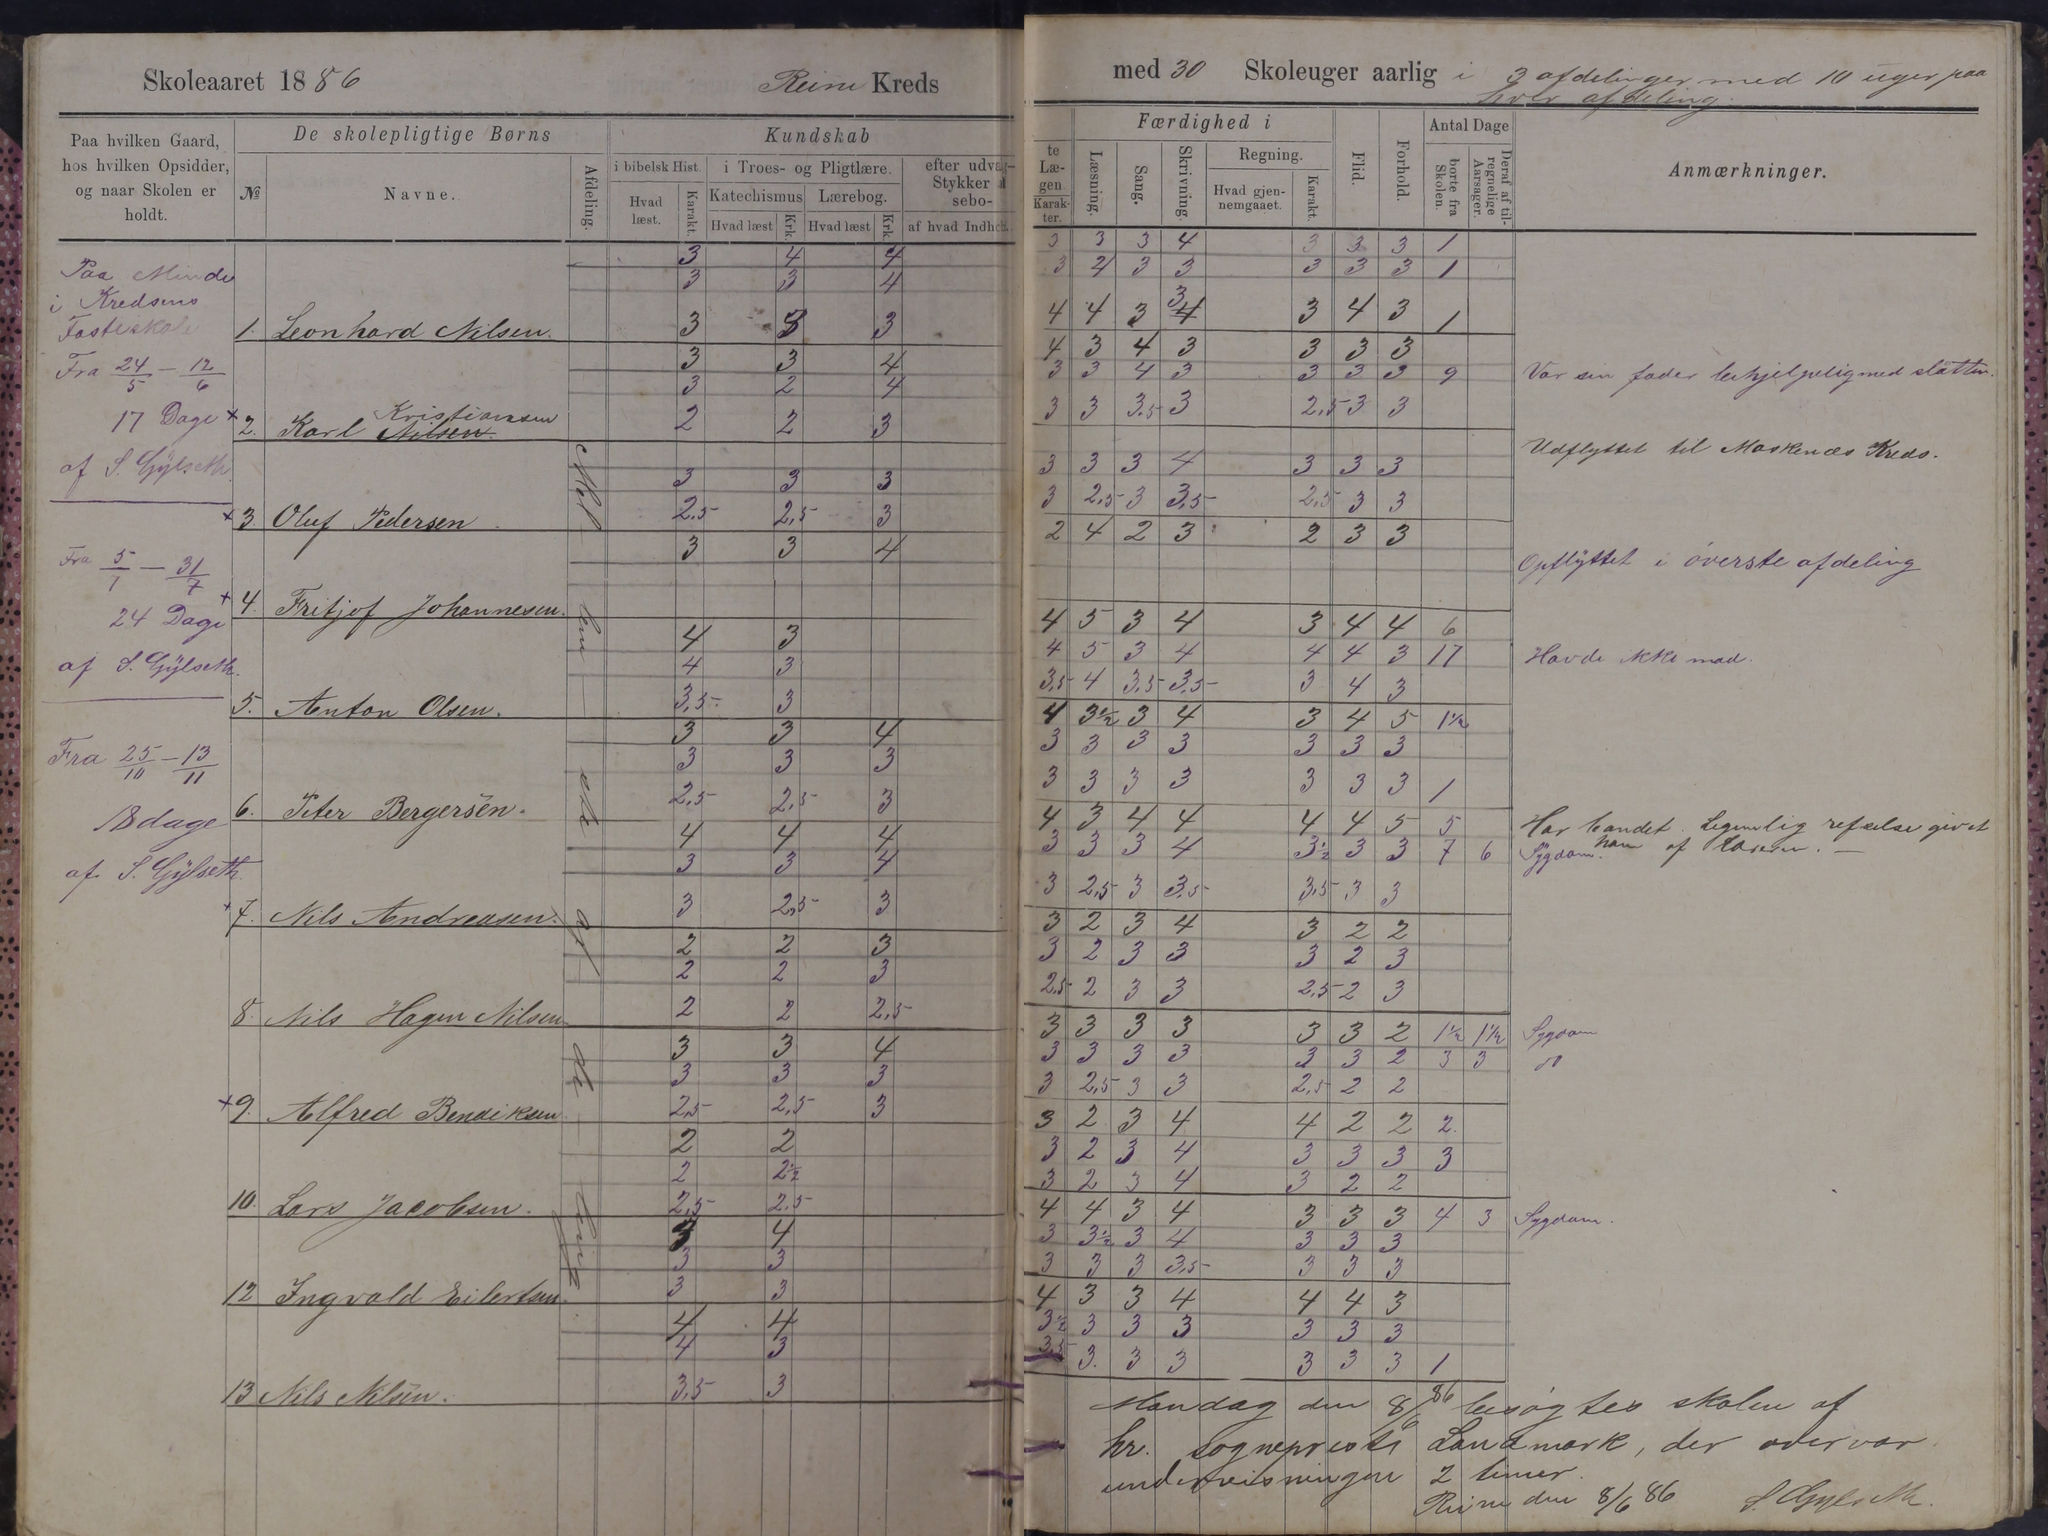 Skoleaaret 1886 Reine Kreds
med 30 Skoleuger aarlig i 3 afdelinger med 10 uger paa
hver afdeling.
Paa hvilken Gaard,
hos hvilken Opsidder,
og naar Skolen er
holdt.
De skolepligtige Børns
№
Navne.
Afdeling.
Kundskab
i bibelsk Hist.
Hvad
læst.
Karakt.
i Troes- og Pligtlære.
Katechismus
Lærebog.
Hvad læst
Krk.
Hvad læst
Krk.
efter udvag-
Stykker a
sebo-
af hvad Indh
te
Læ-
gen
Karak-
ter.
Færdighed i
Læsning.
Sang.
Skrivning.
Regning.
Hvad gjen-
nemgaaet.
Karakt.
Flid.
Forhold.
Antal Dage
borte fra
Skolen.
Deraf af til-
regnelige
Aarsager.
Anmærkninger.
Paa Minde
i Kredsens
Fasteskole
Fra 24/5 - 12/6
17 Dage
af S. Gylseth
Fra 5/7 - 31/7
24 Dage
af S. Gylseth.
Fra 25/10 - 13/11
18 dage
af S. Gylseth
Mel lem ste af de ling.
3 4 4
3 3 4
1. Leonhard Nilsen. 3 3 3
3 3 4
3 2 4
Kristiansen
+ 2. Karl Nilsen 2 2 3
3 3 3
+ 3 Oluf Pedersen 2,5 2,5 3
3 3 4
+ 4. Fritjof Johannesen.
4 3
4 3
5. Anton Olsen. 3,5 3
3 3 4
3 3 3
6. Peter Bergersen. 2,5 2,5 3
4 4 4
3 3 4
+ 7. Nils Andreasen. 3 2,5 3
2 2 3
2 2 3
8. Nils Hagen Nilsen 2 2 2,5
3 3 4
3 3 3
+ 9. Alfred Bendiksen 2,5 2,5 3
2 2
2 2½
10. Lars Jacobsen. 2,5 2,5
3 4
3 3
12 Ingvald Eilertsen. 3 3
4 4
4 3
13 Nils Nilsen. 3,5 3
3 3 3 4 3 3 3 1
3 4 3 3 3 3 3 1
3
4 4 3 4 3 4 3 1
4 3 4 3 3 3 3
3 3 4 3 3 3 3 9 Var sin fader behjelpelig med slåtten.
3 3 3.5 3 2,5 3 3
Udflyttet til Moskenæs Kreds.
3 3 3 4 3 3 3
3 2,5 3 3,5 2,5 3 3
2 4 2 3 2 3 3
Opflyttet i överste afdeling
4 5 3 4 3 4 4 6
4 5 3 4 4 4 3 17 Havde ikke mad.
3,5 4 3,5 3,5 3 4 3
4 3½ 3 4 3 4 5 1½
3 3 3 3 3 3 3
3 3 3 3 3 3 3 1
4 3 4 4 4 4 5 5 Har bandet. Legemlig refselse givet
3 3 3 4 3½ 3 3 7 6 Sygdom. ham af Læreren.
3 2,5 3 3,5 3,5 3 3
3 2 3 4 3 2 2
3 2 3 3 3 2 3
2,5 2 3 3 2,5 2 3
3 3 3 3 3 3 2 1½ 1½ Sygdom
3 3 3 3 3 3 2 3 3 do
3 2,5 3 3 2,5 2 2
3 2 3 4 4 2 2 2.
3 2 3 4 3 3 3 3
3 2 3 4 3 2 2
4 4 3 4 3 3 3 4 3 Sygdom.
3 3½ 3 4 3 3 3
3 3 3 3,5 3 3 3
4 3 3 4 4 4 3
3½ 3 3 3 3 3 3
3,5 3. 3 3 3 3 3 1
Mandag den 8/6 86 besøgtes skolen af
hr. sogneprest Landmark, der overvar
undervisningen 2 timer.
Reine den 8/6 86 S. Gylseth.